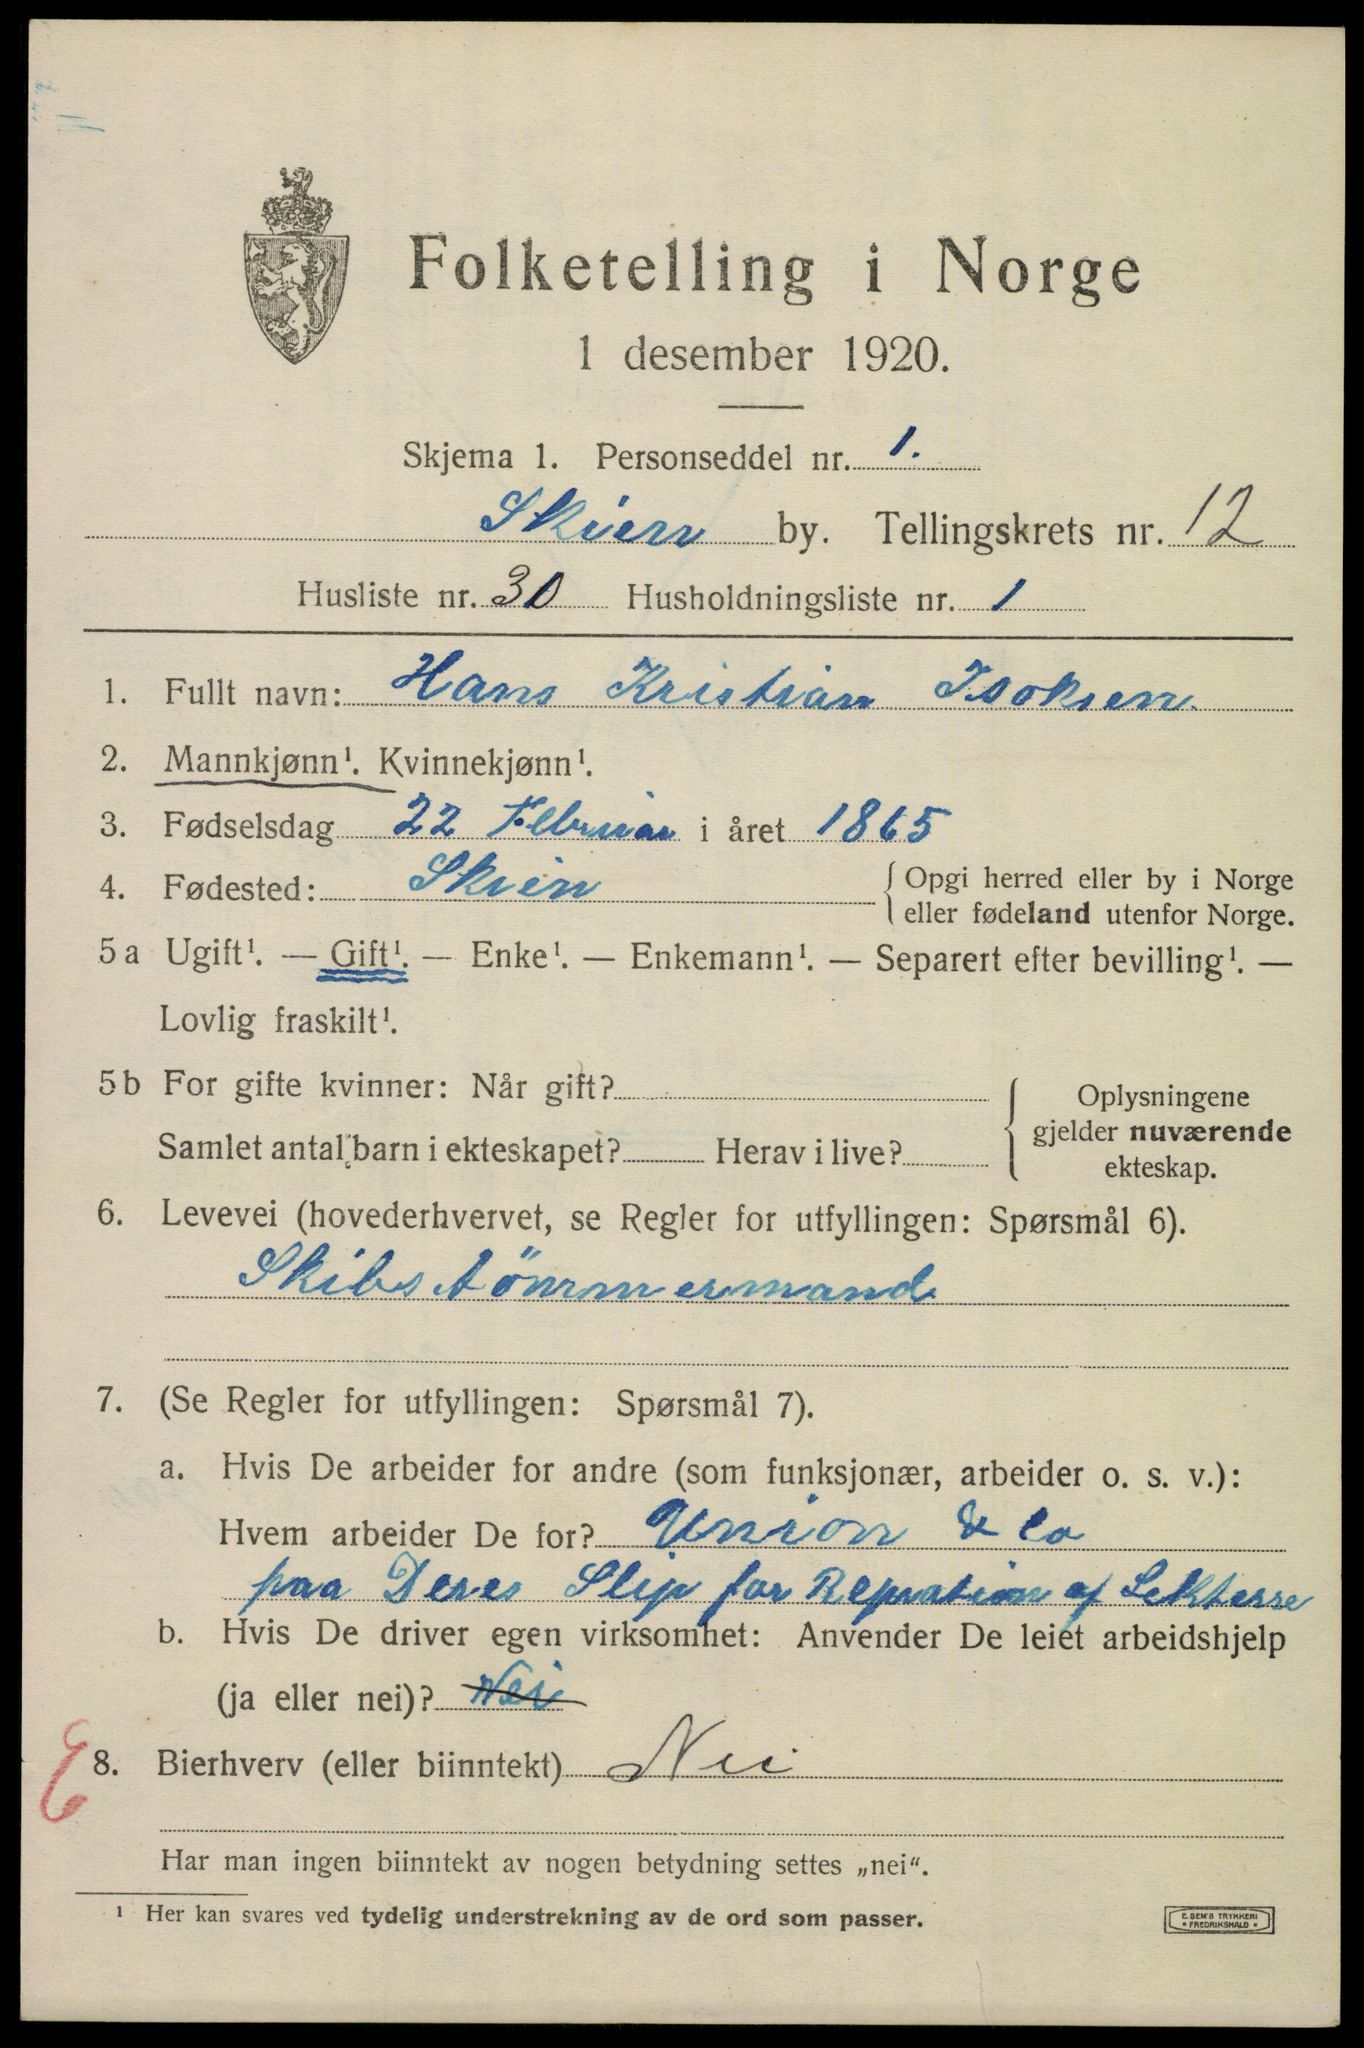 Folketelling i Norge
1 desember 1920.
Skjema 1. Personseddel nr. 1.
Skien by. Tellingskrets nr. 12
Husliste nr. 30 Husholdningsliste nr. 1
1. Fullt navn: Hans Kristian Isaksen.
2. Mannkjønn¹. Kvinnekjønn¹.
3. Fødselsdag 22 Februar i året 1865
4. Fødested: Skien
{ Opgi herred eller by i Norge
eller fødeland utenfor Norge.
5 a Ugift¹. — Gift¹. — Enke¹. — Enkemann¹. — Separert efter bevilling¹. —
Lovlig fraskilt¹.
5 b For gifte kvinner: Når gift?
Samlet antal barn i ekteskapet? Herav i live?
{ Oplysningene
gjelder nuværende
ekteskap.
6. Levevei (hovederhvervet, se Regler for utfyllingen: Spørsmål 6).
Skibstömmermand
7. (Se Regler for utfyllingen: Spørsmål 7).
a. Hvis De arbeider for andre (som funksjonær, arbeider o. s. v.):
Hvem arbeider De for? Union & Co
paa Deres Slip for Repration af Lekterre
b. Hvis De driver egen virksomhet: Anvender De leiet arbeidshjelp
(ja eller nei)? Nei
E
8. Bierhverv (eller biinntekt) Nei
Har man ingen biinntekt av nogen betydning settes „nei“.
¹ Her kan svares ved tydelig understrekning av de ord som passer.
E. SEM'S TRYKKERI
• FREDRIKSHALD •